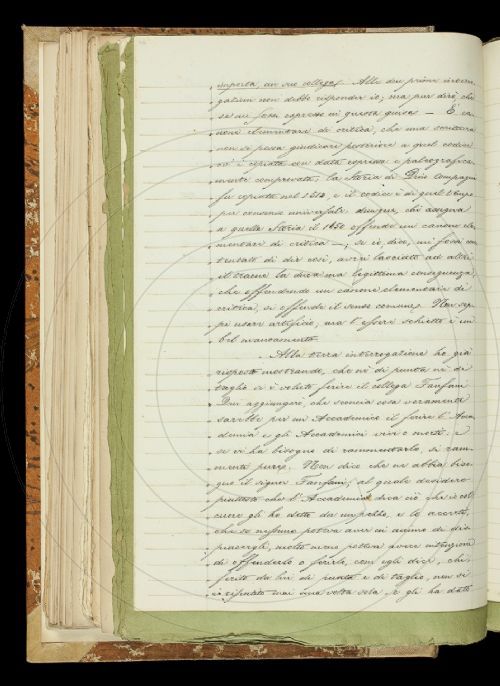 imposta un suo collega. Alle due prime interro-
gazioni non debbo risponder io; ma pur dirò che
se mi fossi espresso in questa guisa — È ca-
none elementare di critica, che una scrittura
non si possa giudicare posteriore a quel codice
ov' è copiata con data espressa e paleografica-
mente comprovata; la storia di Dino Compagni
fu copiata nel 1514, e il codice è di quel tempo
per consenso universale, dunque, chi assegna
a quella Storia il 1650 offende un canone ele-
mentare di critica —; se io, dico, mi fossi con-
tentato di dir così, avrei lasciato ad altri
il trarne la dura ma legittima conseguenza,
che offendendo un canone elementare di
critica, si offende il senso comune. Non sep-
pi usare artifizio; ma l' essere schietto è un
bel mancamento.
Alla terza interrogazione ho già
risposto mostrando, che nè di punta nè di
taglio si è voluto ferire il collega Fanfani
Qui aggiungerò, che sconcia cosa veramente
sarebbe per un Accademico il ferire l' Acca-
demia e gli Accademici vivi o morti: e
se vi ha bisogno di rammentarlo, si ram-
menti pure. Non dico che ne abbia biso-
gno il signor Fanfani; al quale desidero
piuttosto che l' Accademia dica ciò che il
gli ho detto da un pezzo, e lo accerti,
che se nessuno poteva aver in animo di dis-
piacergli, molto meno poteva avere intenzione
di offenderlo o ferirlo, com' egli dice, chi
ferito da lui di punta e di taglio, non si
è risentito mai una volta sola, e gli ha dato